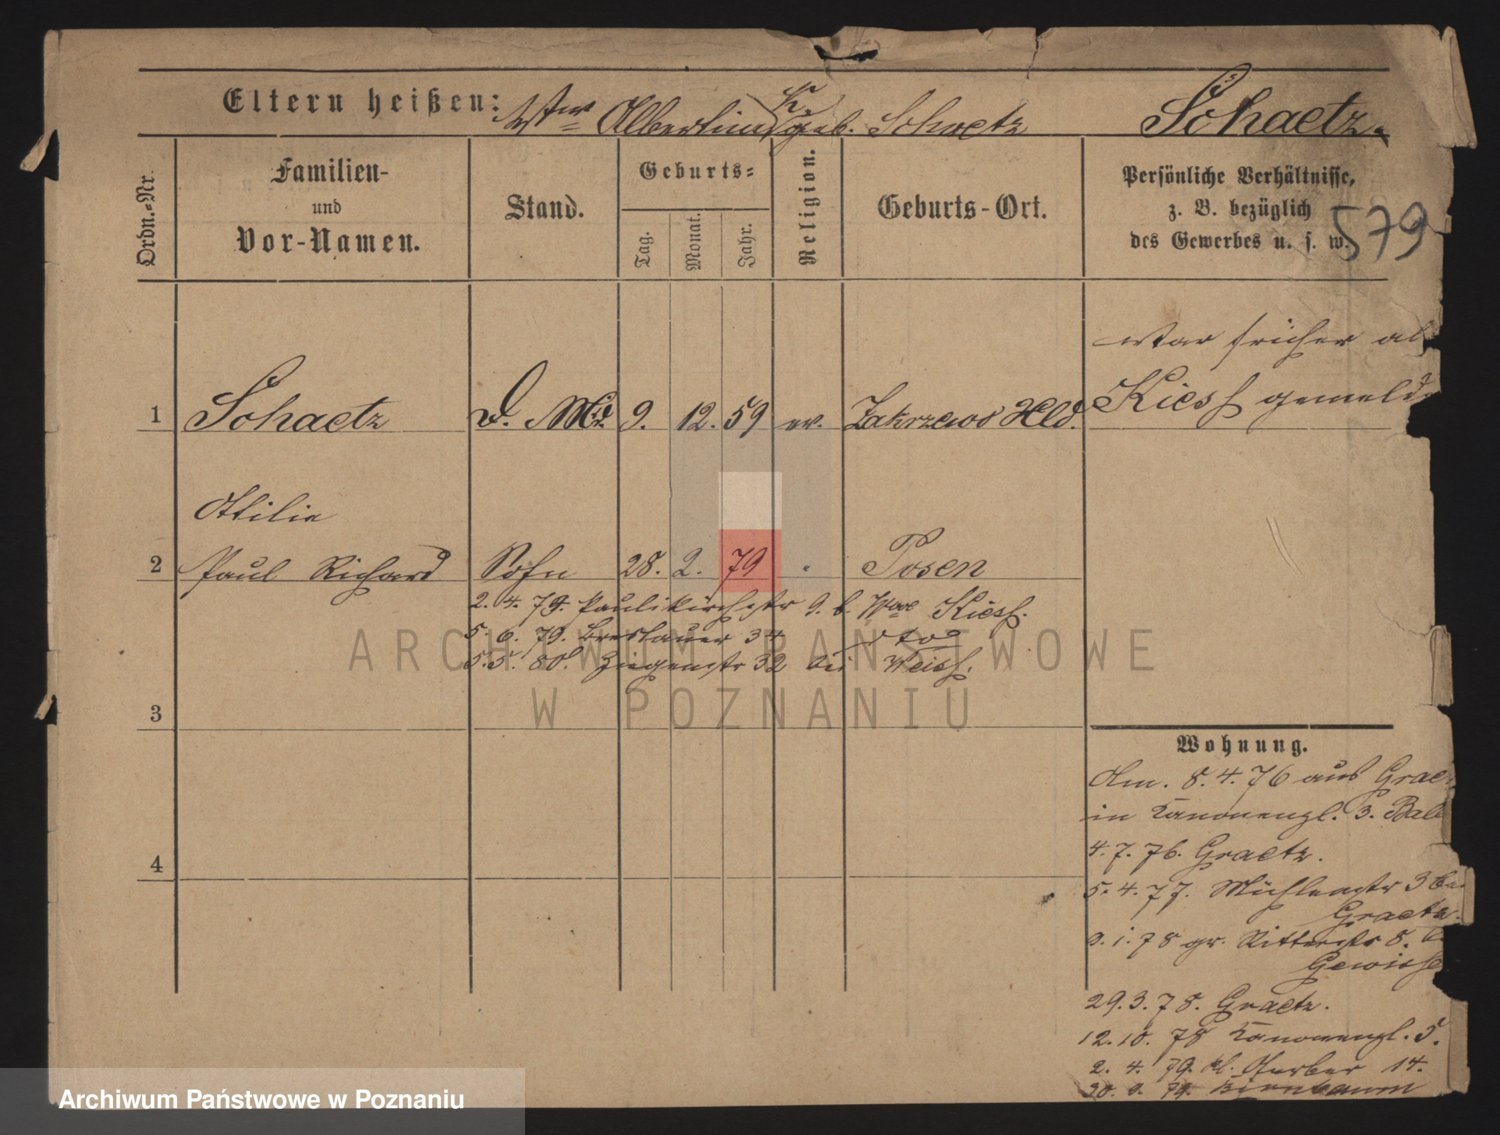 Eltern heißen: Wwe Albertine geb. Schaetz
Schaetz.
Ordn.-Nr.
Familien-
und
Vor-Namen.
Stand.
Geburts-
Tag.
Monat.
Jahr.
Religion.
Geburts-Ort.
Persönliche Verhältnisse,
z. B. bezüglich
des Gewerbes u. s. w.
579
war früher als
Kiesh gemeldet
1 Schaetz D. Md. 9. 12. 59 ev. Zakrzewo Hld.
Ottilie
2 Paul Richard Sohn 28. 2. 79 " Posen
2. 4. 79. Paulikirchstr 9. b. Kiesh.
5 6. 79. Breslauer 34 dto
5.5. 80. Ziegenstr 32 bei Weish.
3
4
Wohnung.
Am. 8. 4. 76 aus Graetz
in Kanonengl. 3. Bal
4. 7. 76. Graetz.
5. 4. 77. Mühlenstr 3 bei
Graetz.
3. 1. 78 gr. Ritterstr 8. b
29. 3. 78. Graetz.
12. 10. 78 Kanonengl. 5.
2. 4. 79. kl. Gerber 14.
20. 9. 79. Birnbaum
ARCHIWUM PAŃSTWOWE
W POZNANIU
Archiwum Państwowe w Poznaniu